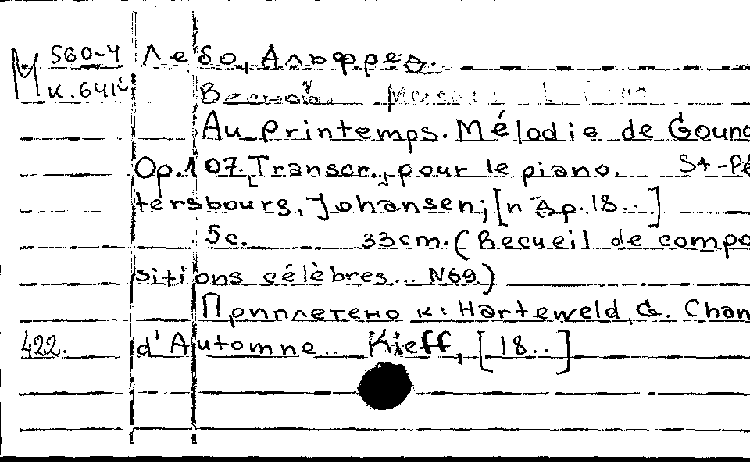 М 560-4 Лебо, Альфред.
к.641с Весной.
Au Printemps. Mélodie de Goun
Op.107, Transcr., pour le piano. St-Pé
tersbourg, Johansen; [n др. 18..]
5с. 33cm. (Recueil de compo
sitions célèbres... N69)
Приплетено к: Harteweld, G. Chan
422. d'Automne... Kieff, [18..]